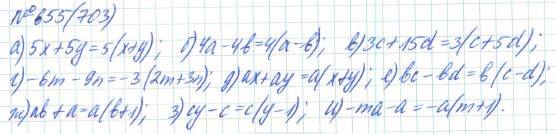 № 655 (703)
а) 5x + 5y = 5(x+y); б) 4a - 4b = 4(a-b); в) 3c + 15d = 3(c + 5d);
г) -6m - 9n = -3(2m+3n); д) ax + ay = a(x+y); е) bc - bd = b(c-d);
ж) ab + a = a(b+1); з) cy - c = c(y-1); и) -ma - a = -a(m+1).